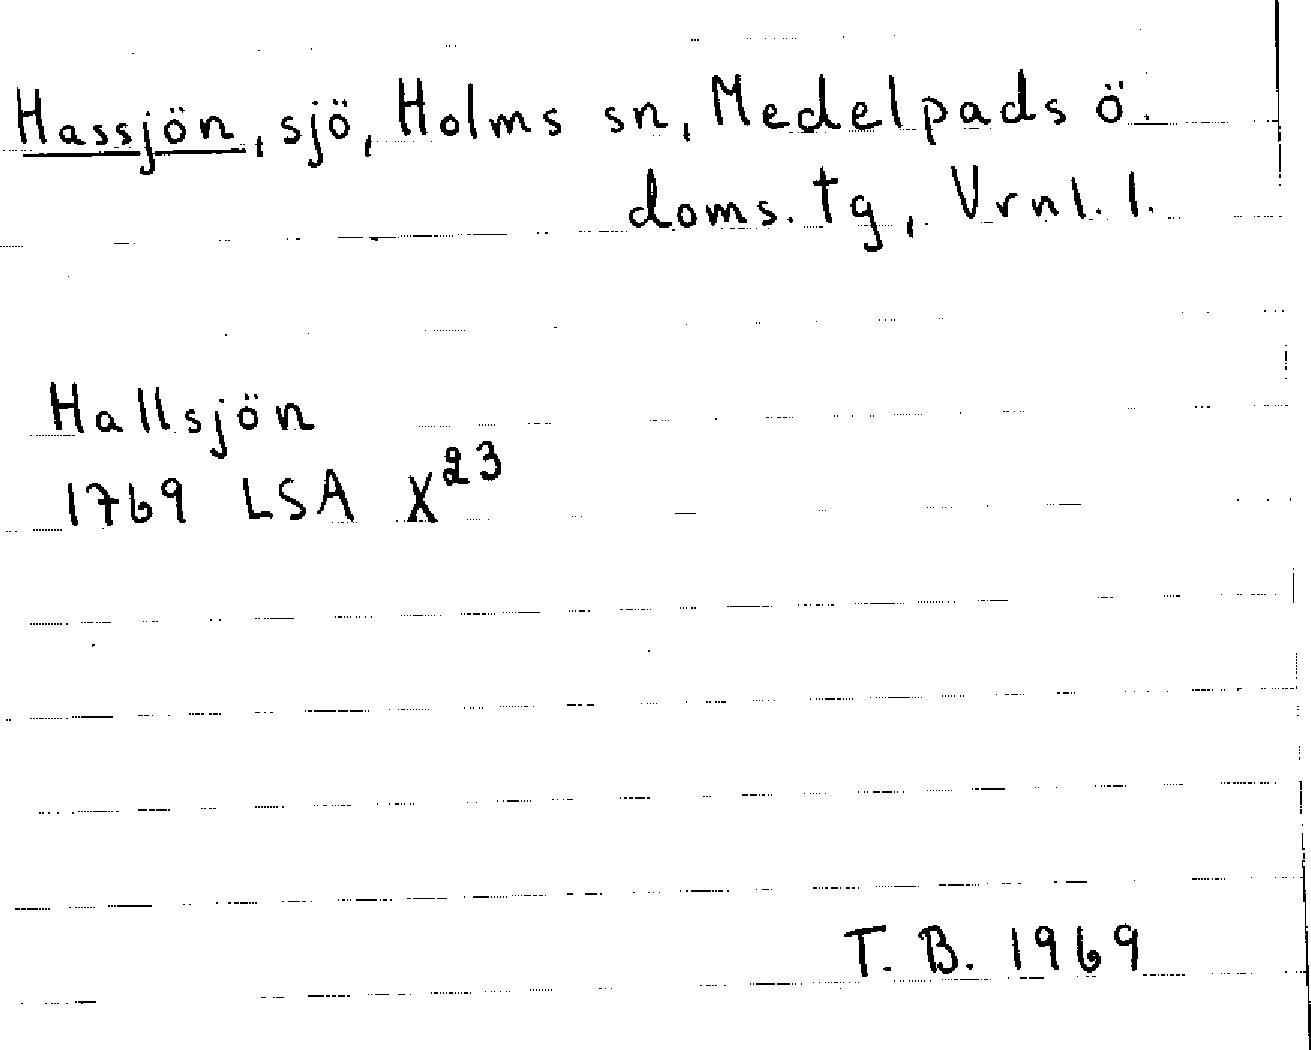 Hassjön, sjö, Holms sn, Medelpads ö.
doms. tg, Vrnl. l.
Hallsjön
1769 LSA X²³
T. B. 1969